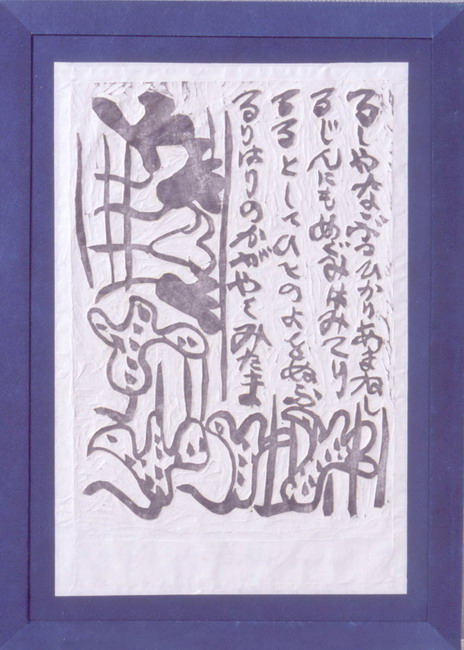 るしやなぶつひかりあまねし
るじんにもめぐみはみてり
るるとしてひとのよをぬふ
るりはりのかがやくみたま